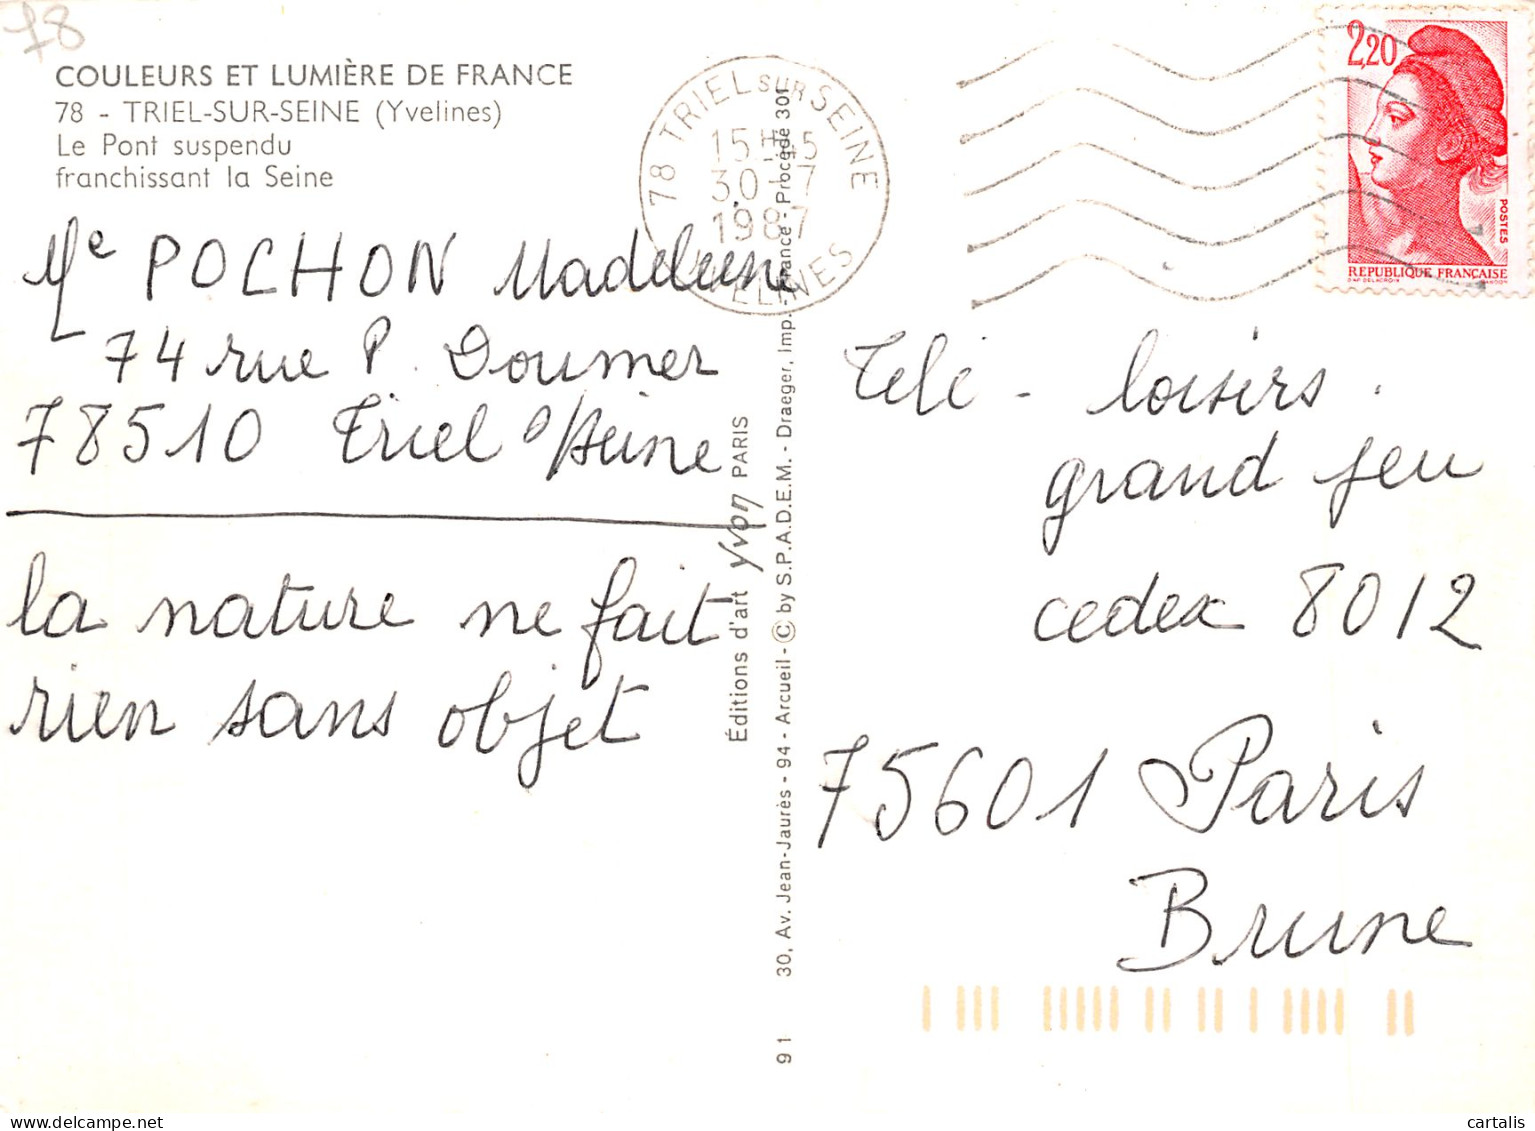 78
COULEURS ET LUMIÈRE DE FRANCE
78 - TRIEL-SUR-SEINE (Yvelines)
Le Pont suspendu
franchissant la Seine
78 TRIEL SUR SEINE
15H15
30-7
1987
YVELINES
2,20
POSTES
REPUBLIQUE FRANÇAISE
DAP. DELACROIX GANDON
Me POCHON Madeleine
74 rue P. Doumer
78510 Triel s/Seine
la nature ne fait
rien sans objet
Éditions d'art yvon PARIS
30, Av. Jean-Jaurès - 94 - Arcueil - © by S.P.A.D.E.M. - Draeger, Imp. - France - Procédé 301
91
Télé - loisirs.
grand jeu
cedex 8012
75601 Paris
Brune
cartalis